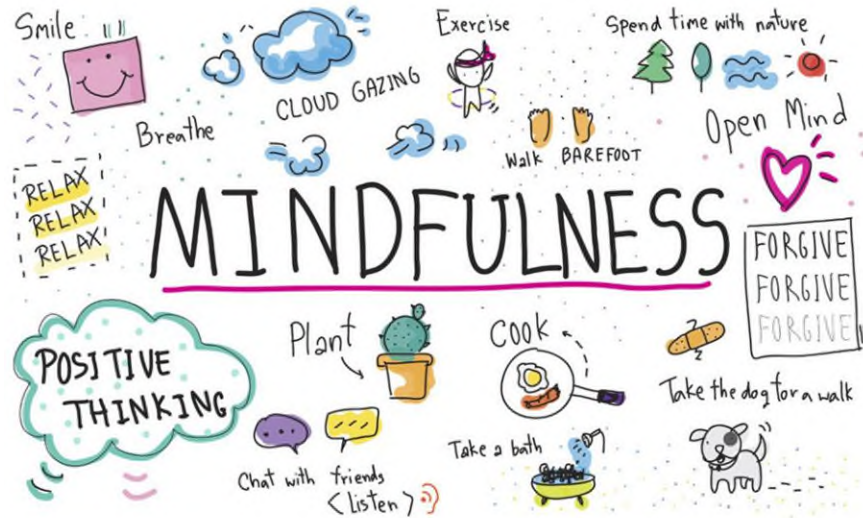 Smile
Breathe
CLOUD GAZING
Exercise
Spend time with nature
Walk BAREFOOT
Open Mind
RELAX
RELAX
RELAX
MINDFULNESS
FORGIVE
FORGIVE
FORGIVE
POSITIVE
THINKING
Plant
COOK
Take the dog for a walk
Chat with friends
<Listen>
Take a bath